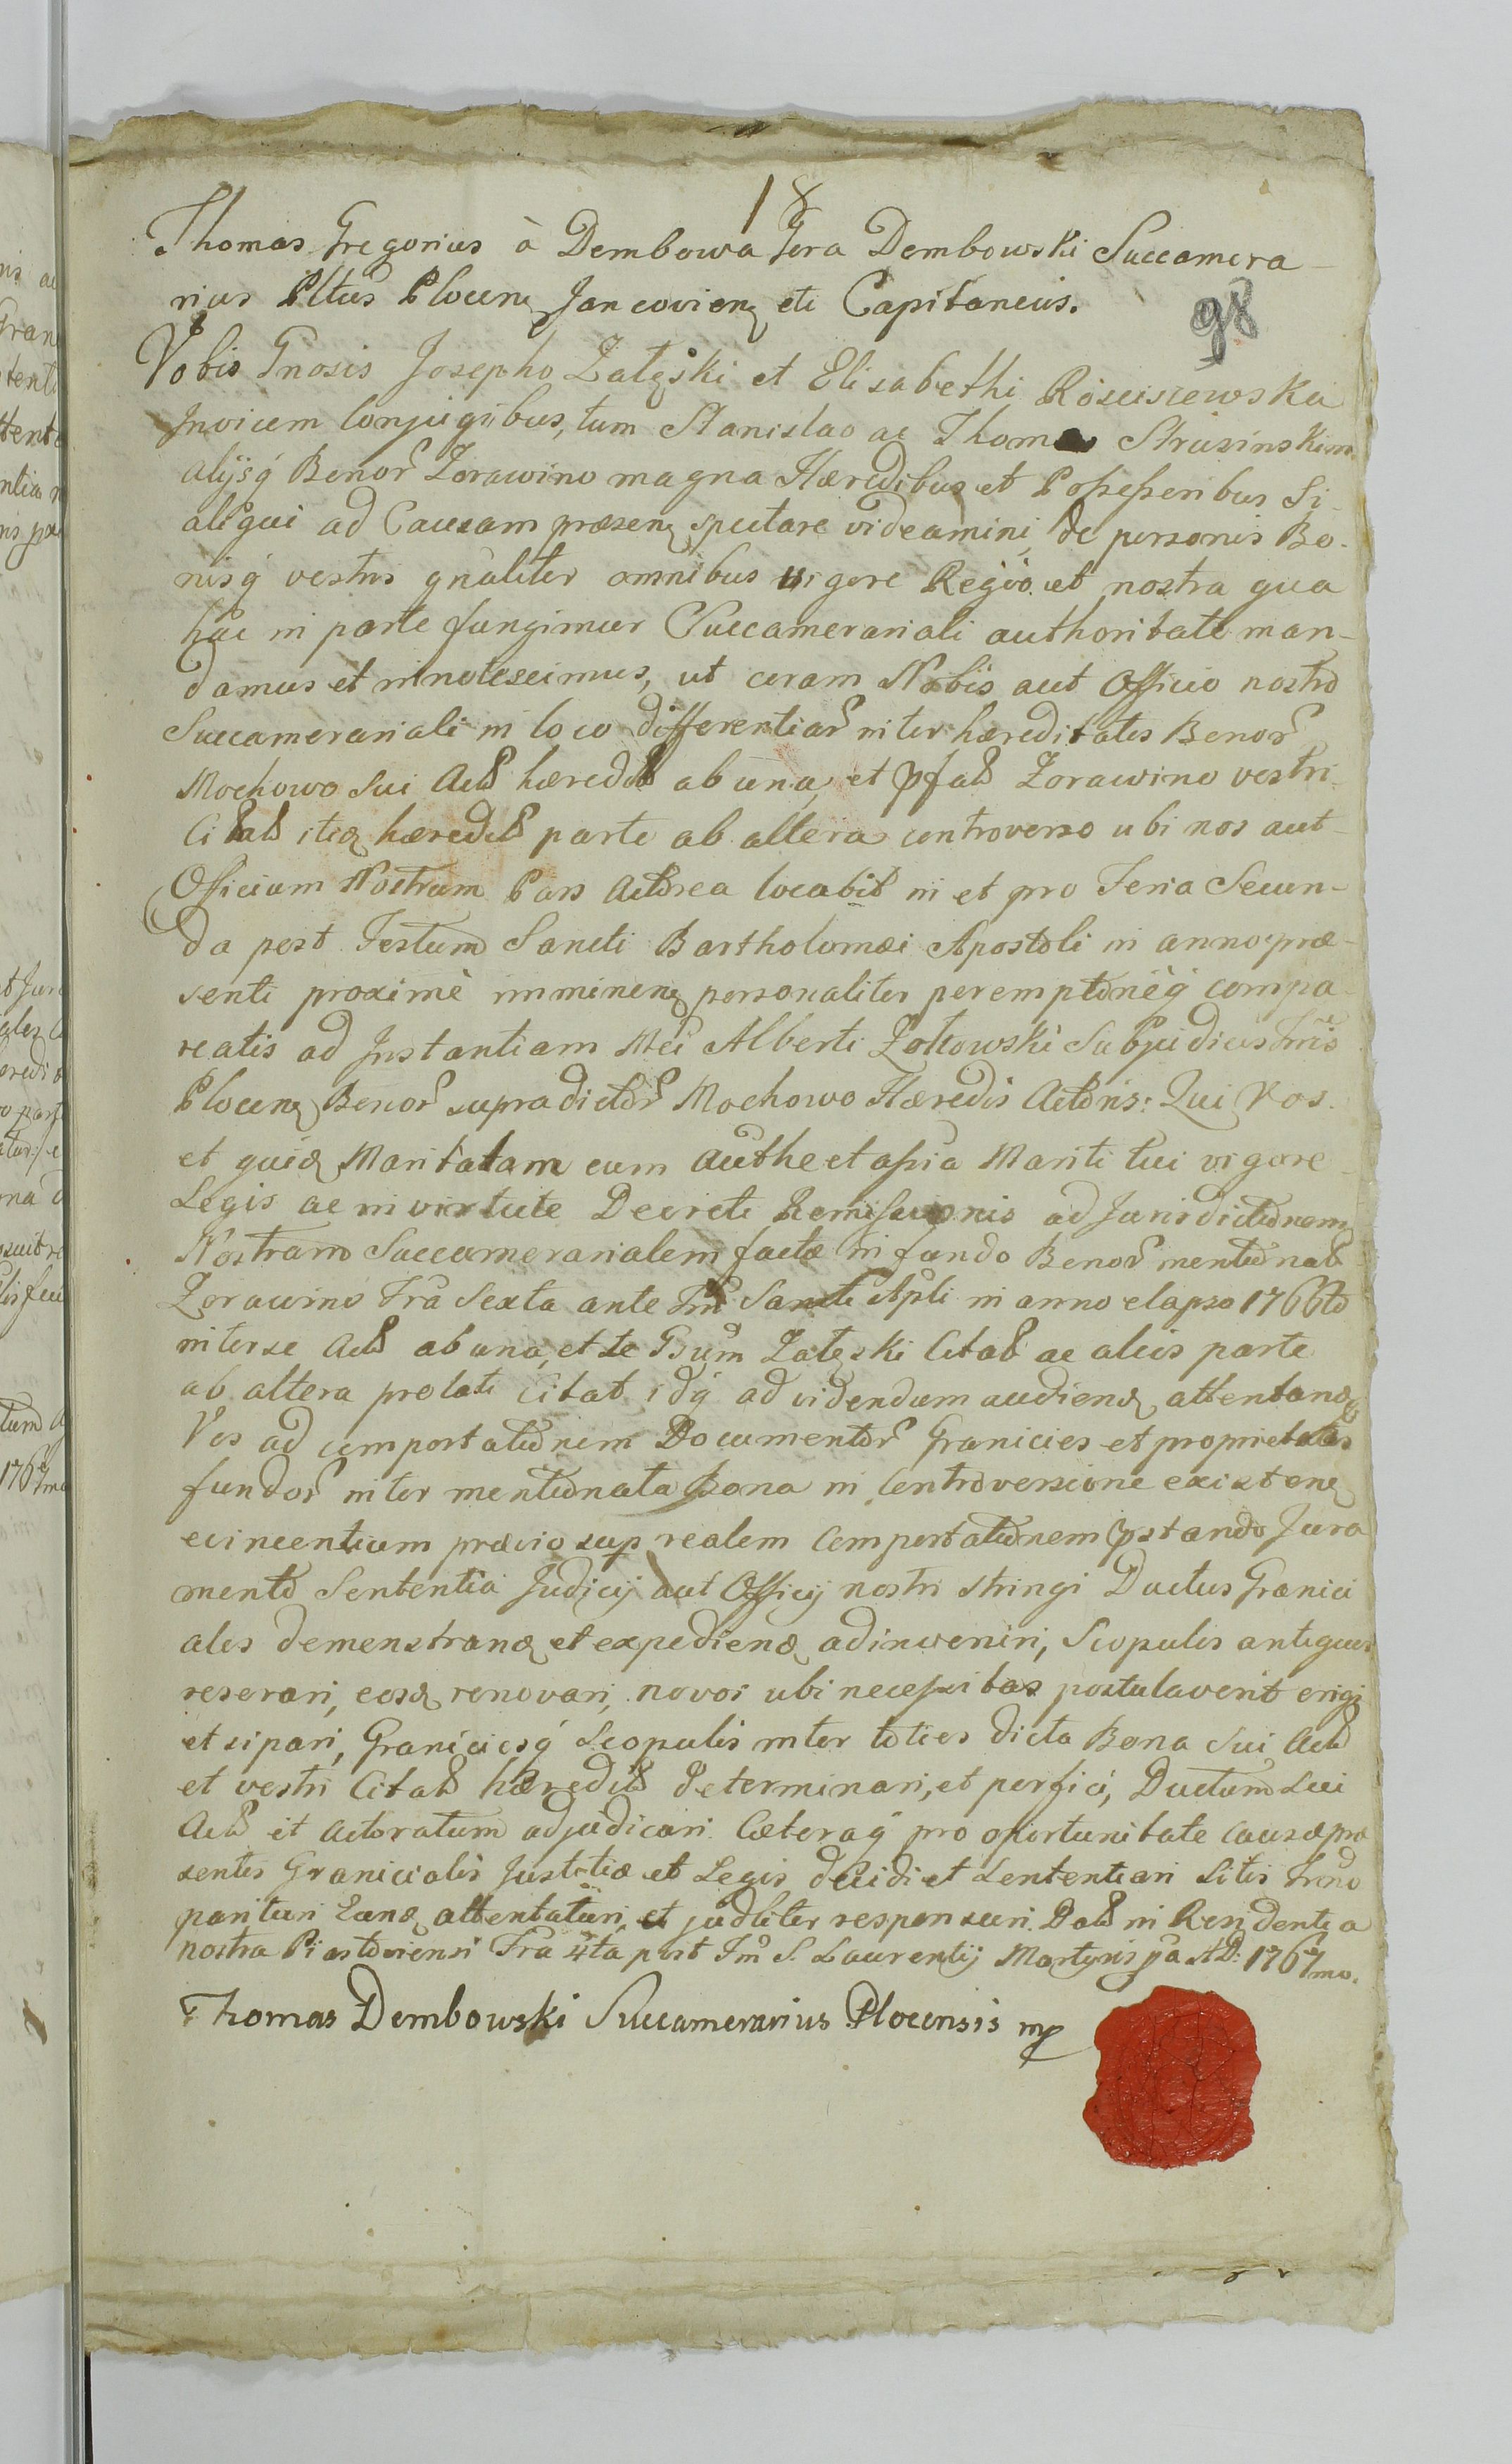 18
Thomas Gregorius à Dembowa Gora Dembowski Succamera-
rius Pltus Plocen Jancovien etc Capitaneus.
98
Vobis Gnosis Josepho Załęski et Elisabethi Rosciszewska
Invicem Conjugibus, tum Stanislao ac Thoma Struzinskim
alijsq Benor Zorawino magna Hæredibus et Possessoribus Si-
aliqui ad Causam præsen spectare videamini, de personis Bo-
nisq vestris gnaliter omnibus vigore Regio et nostra qua
hac in parte fungimur Succamerariali authoritate man-
damus et innotescimus, ut coram Nobis aut Officio nostro
Succamerariali in loco differentiar inter hæreditates Benor
Mochowo Sui Act hæredit ab una, et Pfat Zorawino vestri
Citat iteq hæredit parte ab altera controverso ubi nos aut
Officium Nostrum Pars Actorea locabit in et pro Feria Secun-
da post Festum Sancti Bartholomæi Apostoli in anno præ-
senti proximè imminen personaliter peremptorièq compa-
reatis ad Instantiam Mci Alberti Zołtowski Subjudicis Trris
Plocen Benor supradictor Mochowo Hæredis Actoris: Qui Vos
et quid Maritatam cum Authe et assia Mariti tui vigore
Legis ac in virtute Decreti Remissionis ad Jurisdictionem
Nostram Succamerarialem factæ in fundo Benor mentionat
Zorawino Fra Sexta ante Fm Sancti Apli in anno elapso 1766to
inter se Act ab una, et te Gsum Załęski Citat ac aliis parte
ab altera prolati Citat idq ad videndum audiend attentand
Vos ad comportationem Documentor Granicies et proprietates
fundor inter mentionata Bona in Controversione existen
evincentium prævio sup realem Comportationem Pstando Jura
mento Sententia Judicij aut Officij nostri stringi Ductus Granici
ales demonstrand et expediend adinveniri, Scopulos antiquos
reserari, eosq renovari, novos ubi necessitas postulaverit erigi
et sipari, Graniciesq Scopulis inter toties dicta Bona Sui Act
et vestri Citat hæredit determinari, et perfici, Ductum Sui
Act et Actoratum adjudicari Cæteraq pro oportunitate causæ præ
sentis Granicialis Justitiæ et Legis decidi et sententiari Sitis Trmo
parituri Eund attentaturi, et judliter responsuri. Dat in Residentia
nostra Piastoviensi Fra 4ta post Fm S. Laurentij Martyris pa AD: 1767mo.
Thomas Dembowski Succamerarius Plocensis mp